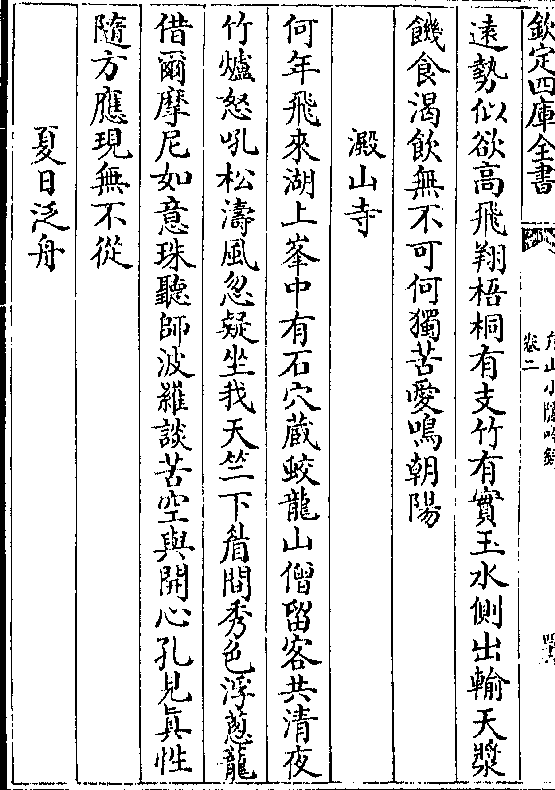 欽定四庫全書
卷二
遠勢似欲高飛翔梧桐有支竹有實玉水側出輸天漿
饑食渴飲無不可何獨苦愛鳴朝陽
澱山寺
何年飛來湖上峯中有石穴藏蛟龍山僧留客共清夜
竹爐怒吼松濤風忽疑坐我天竺下眉間秀色浮蔥蘢
借爾摩尼如意珠聽師波羅談苦空與開心孔見眞性
隨方應現無不從
夏日泛舟